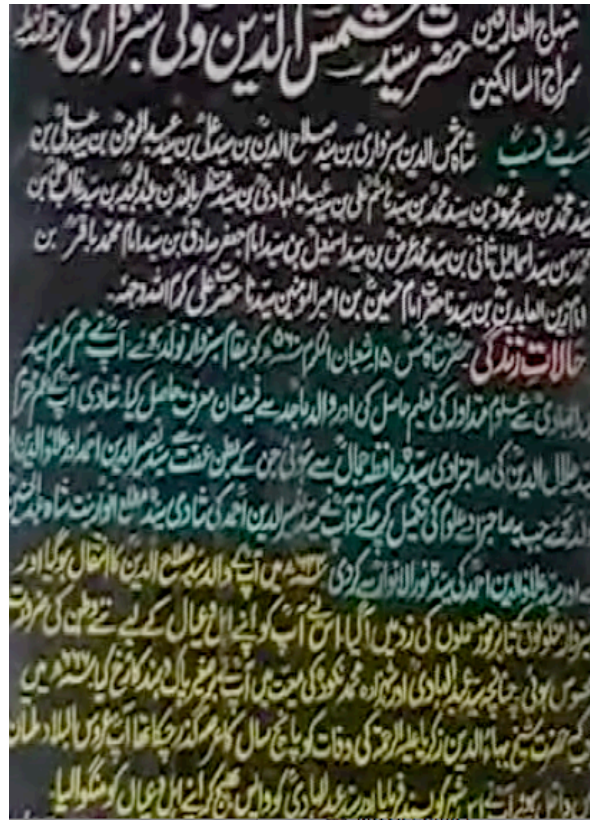 منہاج العارفین
سراج السالکین
حضرت سید شمس الدین ولی سبزواری
حسب و نسب شاہ شمس الدین سبزواری بن سید صلاح الدین بن سید علی بن سید عبد المومن بن سید علی بن
سید محمد بن سید محمود بن سید محمد بن سید ہاشم علی بن سید عبد الہادی بن سید منتظر باللہ بن عبد المجید بن سید غالب بن
محمد بن سید اسماعیل ثانی بن سید محمد عریض بن سید اسمعیل بن سید امام جعفر صادق بن سید امام محمد باقر بن
امام زین العابدین بن سیدنا حضرت امام حسین بن امیر المومنین سیدنا حضرت علی کرم اللہ وجہہ۔
حالات زندگی۔ حضرت شاہ شمس ۱۵ شعبان المکرم ۵۶۰ھ کو بمقام سبزوار تولد ہوئے آپ نے عم مکرم سید
عبد الہادی سے علوم متداولہ کی تعلیم حاصل کی اور والد ماجد سے فیضان معرفت حاصل کیا شادی آپ کے عم محترم
سید جلال الدین کی صاجزادی سیدہ حافظہ جمال سے ہوئی جن کے بطن عفت سے سید نصیر الدین احمد اور علاؤ الدین
تولد ہوئے جب یہ صاجزادے علوم کی تکمیل کر چکے تو آپ نے سید نصیر الدین احمد کی شادی سیدہ انور بنت شاہ عبد
سے اور سید علاؤ الدین احمد کی سیدہ نور الانوار سے کردی میں آپ کے والد سید صلاح الدین کا انتقال ہوگیا اور
سبزوار منگولوں کے تابڑ توڑ حملوں کی زد میں آ گیا، اس لئے آپ کو اپنے اہل و عیال کے لیے نئے وطن کی ضرورت
محسوس ہوئی۔ چنانچہ سید عبد الہادی اور شہزادہ محمد نکودر کی معیت میں آپ نے برصغیر پاک و ہند کا رخ کیا میں
جب حضرت شیخ بہاؤ الدین زکریا علیہ الرحمۃ کی وفات کو پانچ سال کا عرصہ گذر چکا تھا آپ عروس البلاد ملتان
میں داخل ہوئے آپ نے اس شہر کو پسند فرمایا اور سید عبد الہادی کو واپس بھیج کر اپنے اہل و عیال کو منگوا لیا۔